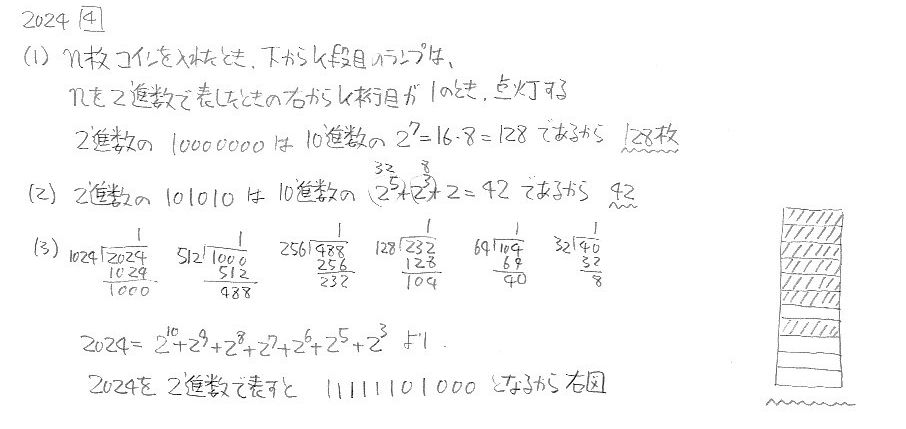 2024 4
(1) n枚コインを入れたとき、下からk段目のランプは、
nを2進数で表したときの右からk桁目が1のとき、点灯する
2進数の 10000000 は 10進数の 2^7=16・8=128 であるから 128枚
(2) 2進数の 101010 は 10進数の 2^5+2^3+2=42 であるから 42
32 8
(3) 1024 2024 1 1024 1000
512 1000 1 512 488
256 488 1 256 232
128 232 1 128 104
64 104 1 64 40
32 40 1 32 8
2024=2^10+2^9+2^8+2^7+2^6+2^5+2^3 より
2024を2進数で表すと 11111101000 となるから右図